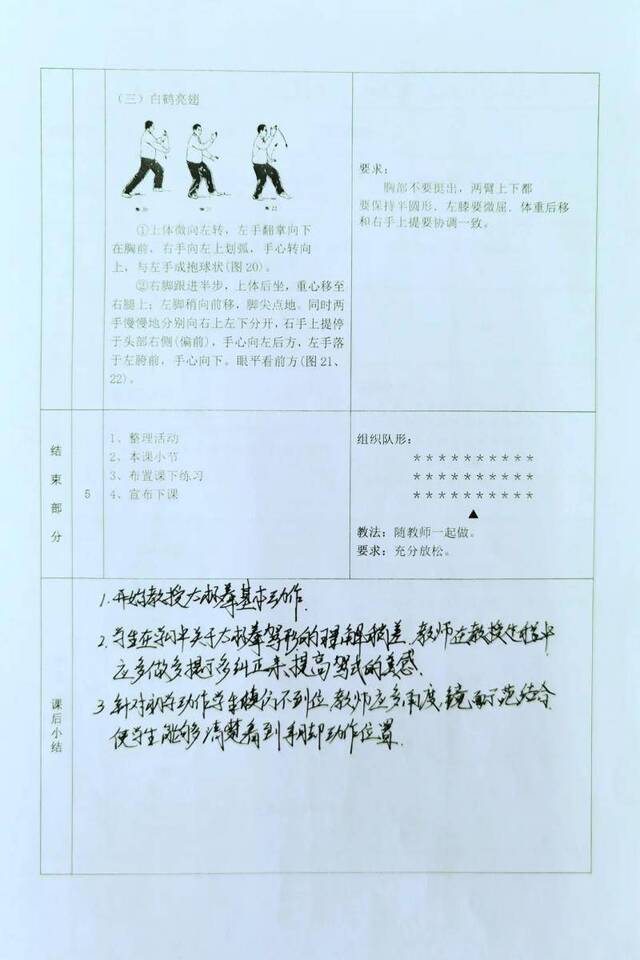 （三）白鹤亮翅
20 21 22
①上体微向左转，左手翻掌向下
在胸前，右手向左上划弧，手心转向
上，与左手成抱球状(图20)。
②右脚跟进半步，上体后坐，重心移至
右腿上；左脚稍向前移，脚尖点地。同时两
手慢慢地分别向右上左下分开，石手上提停
于头部右侧(偏前)，手心向左后方，左手落
于左胯前，手心向下。眼平看前方(图21、
22)。
要求：
胸部不要挺出，两臂上下都
要保持半圆形．左膝要微屈．体重后移
和右手上提要协调一致。
结束部分
5
1、整理活动
2、本课小节
3、布置课下练习
4、宣布下课
组织队形：
＊＊＊＊＊＊＊＊＊＊
＊＊＊＊＊＊＊＊＊＊
＊＊＊＊＊＊＊＊＊＊
▲
教法：随教师一起做。
要求：充分放松。
课后小结
1.开始教授太极拳基本动作.
2.学生在学习中关于太极拳驾形的理解稍差.教师在教授过程中
应多做多提示多纠正来提高驾式的美感.
3.针对初学动作学生模仿不到位.教师应多角度,镜面示范结合
使学生能够清楚看到手脚动作位置.